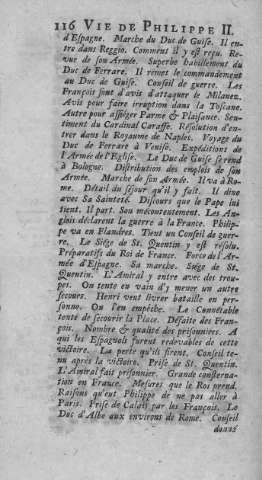 116 VIE DE PHILIPPE II.
d'Espagne. Marche du Duc de Guise. Il en-
tre dans Reggio. Comment il y est reçu. Re-
vue de son Armée. Superbe habillement du
Duc de Ferrare. Il remet le commandement
au Duc de Guise. Conseil de guerre. Les
François sont d'avis d'attaquer le Milanez.
Avis pour faire irruption dans la Toscane.
Autre pour assiéger Parme & Plaisance. Sen-
timent du Cardinal Caraffe. Résolution d'en-
trer dans le Royaume de Naples. Voyage du
Duc de Ferrare à Venise. Expéditions de
l'Armée de l'Eglise. Le Duc de Guise se rend
à Bologne. Distribution des emplois de son
Armée. Marche de son Armée. Il va à Ro-
me. Détail du séjour qu'il y fait. Il dîne
avec Sa Sainteté. Discours que le Pape lui
tient. Il part. Son mécontentement. Les An-
glois déclarent la guerre à la France. Philip-
pe va en Flandres. Tient un Conseil de guer-
re. Le Siége de St. Quentin y est résolu.
Préparatifs du Roi de France. Force de l'Ar-
mée d'Espagne. Sa marche. Siége de St.
Quentin. L'Amiral y entre avec des trou-
pes. On tente en vain d'y mener un autre
secours. Henri veut livrer bataille en per-
sonne. On l'en empêche. Le Connétable
tente de secourir la Place. Défaite des Fran-
çois. Nombre & qualité des prisonniers. A
qui les Espagnols furent redevables de cette
victoire. La perte qu'ils firent. Conseil te-
nu après la victoire. Prise de St. Quentin.
L'Amiral fait prisonnier. Grande consterna-
tion en France. Mesures que le Roi prend.
Raisons qu'eut Philippe de ne pas aller à
Paris. Prise de Calais par les François. Le
Duc d'Albe aux environs de Rome. Conseil
donné